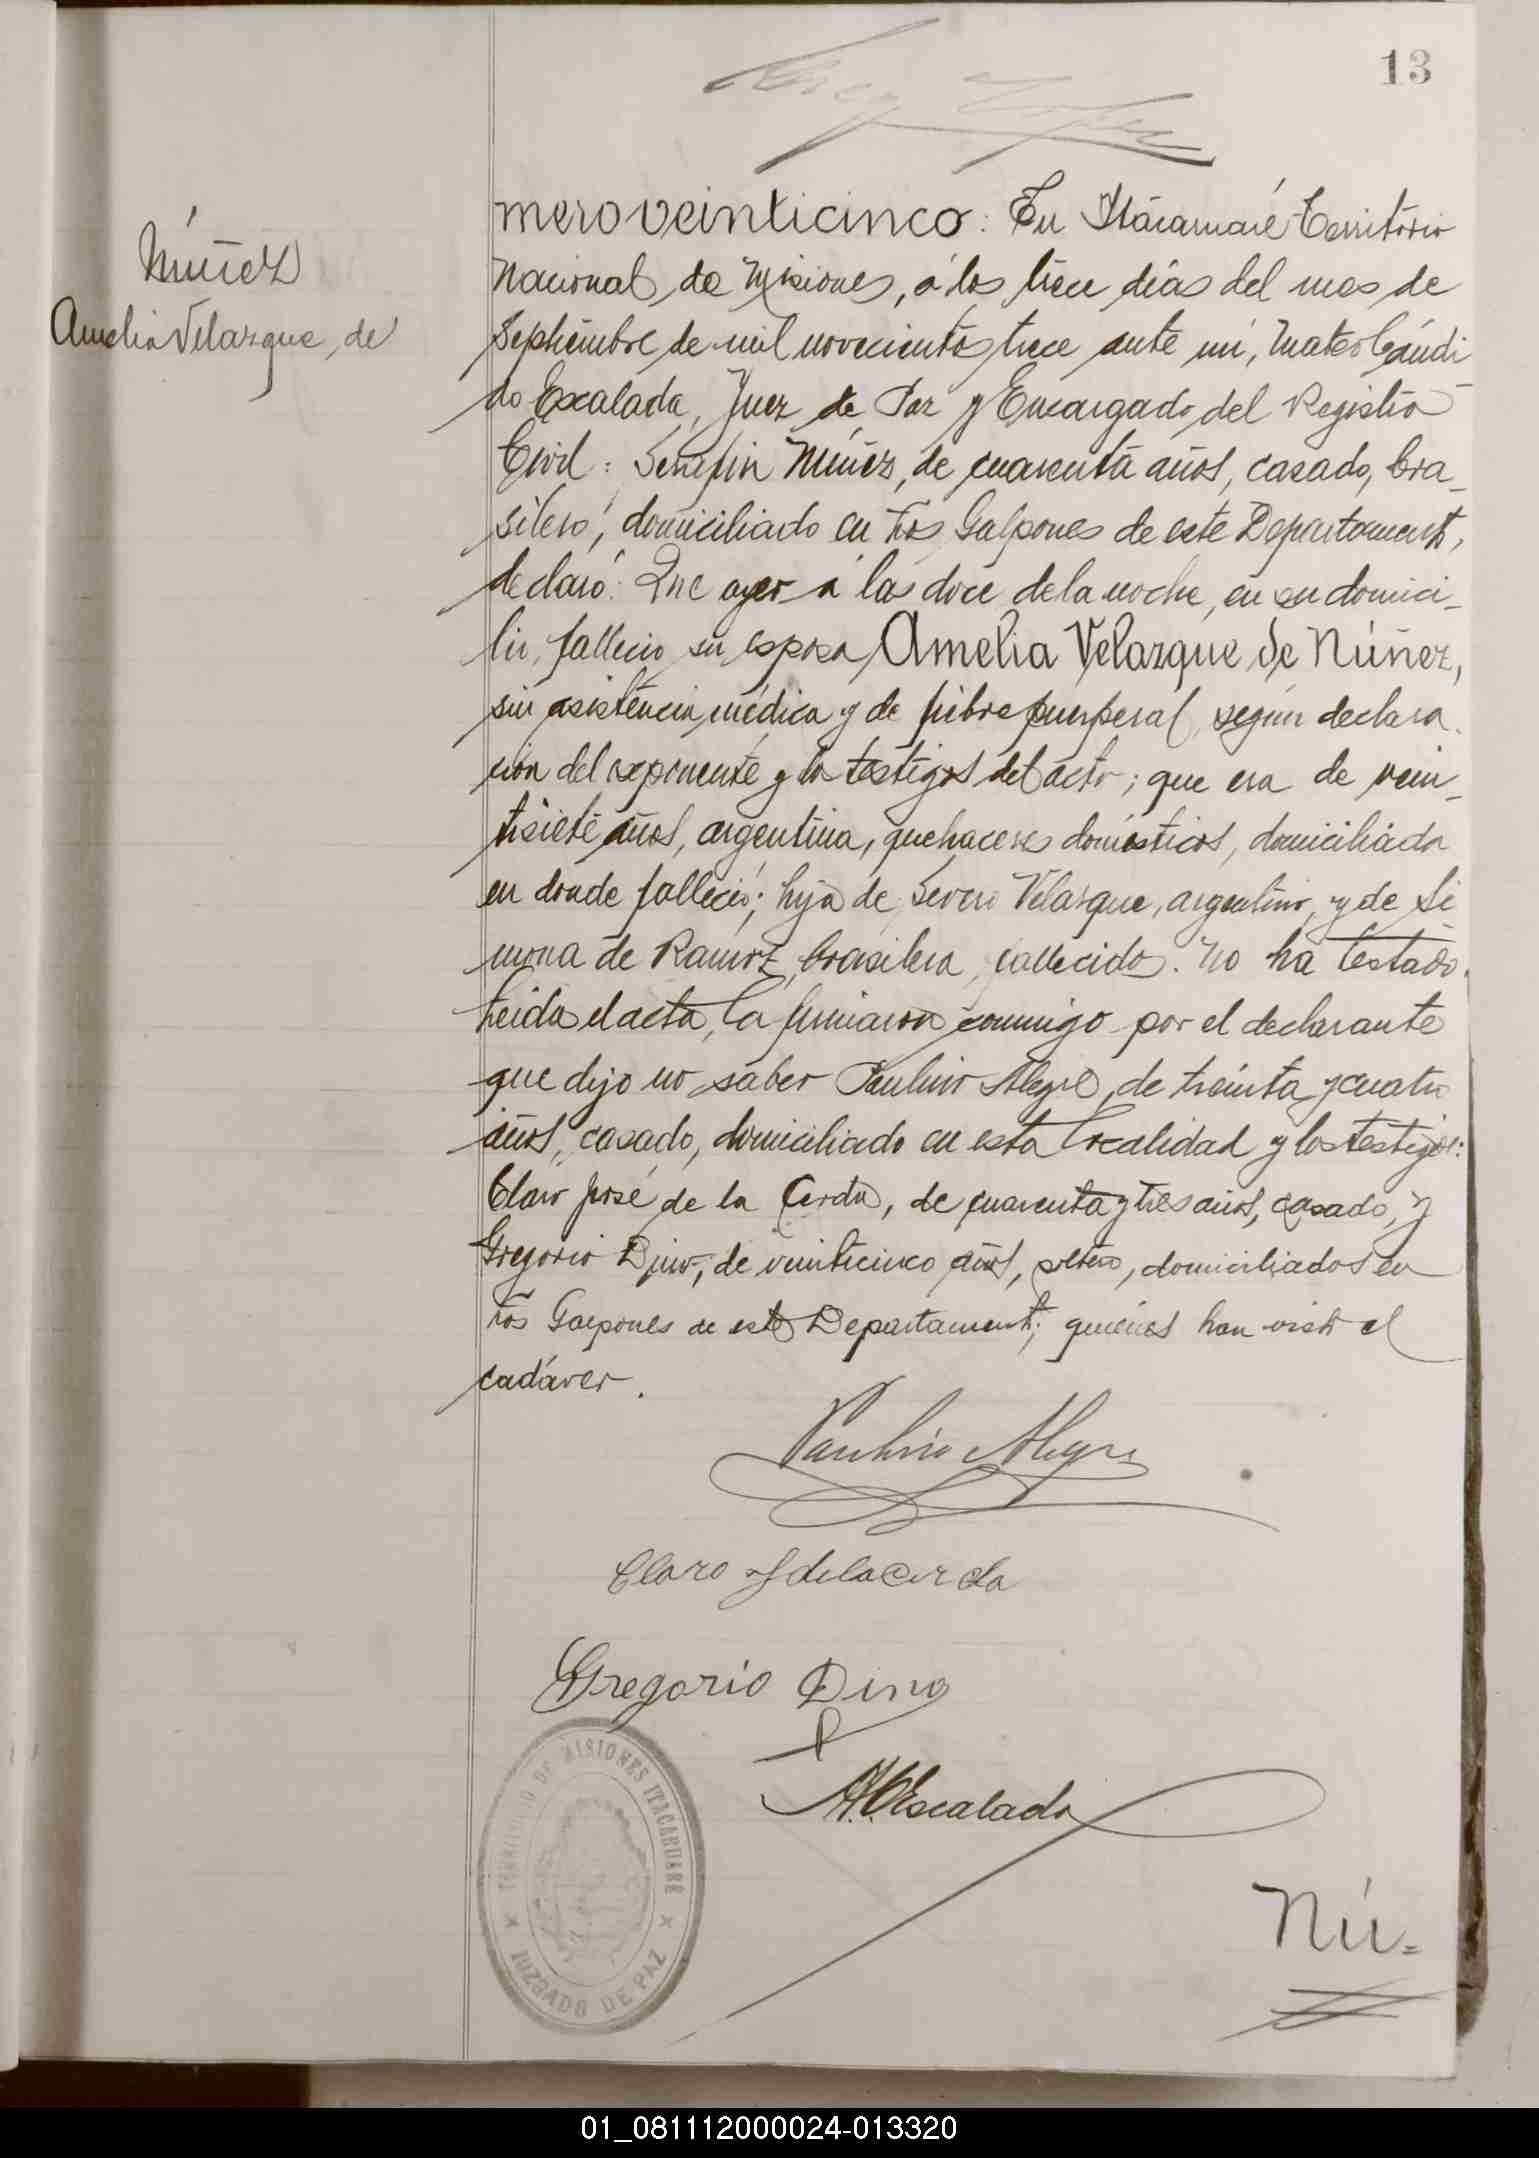 13
Núñez
Amelia Velazque, de
mero veinticinco: En Itacaruaré Territorio
Nacional de Misiones, á los trece días del mes de
Septiembre de mil novecientos trece ante mi, Mateo Cándi
do Escalada, Juez de Paz y Encargado del Registro
Civil: Serafin Núñez, de cuarenta años, casado, bra_
silero, domiciliado en Tres Galpones de este Departamento,
declaró: Que ayer á las doce de la noche, en su domici_
lio, falleció su esposa Amelia Velazque de Núñez,
sin asistencia médica y de fiebre puerperal, según declara_
ción del exponente y los testigos del acto; que era de vein_
tisiete años, argentina, quehaceres domésticos, domiciliada
en donde falleció; hija de Severo Velazque, argentino, y de Si
mona de Ramirez, brasilera, fallecidos. No ha testado.
Leida el acta, la firmaron conmigo por el declarante
que dijo no saber Paulino Alegre, de treinta y cuatro
años, casado, domiciliado en esta localidad y los testigos:
Claro José de la Cerda, de cuarenta y tres años, casado, y
Gregorio Dino, de veinticinco años, soltero, domiciliados en
Tres Galpones de este Departamento; quienes han visto el
cadáver.
Paulino Alegre
Claro J de la Cerda
Gregorio Dino
M. C. Escalada
TERRITORIO DE MISIONES ITACARUARÉ
JUZGADO DE PAZ
Nú=
01_081112000024-013320